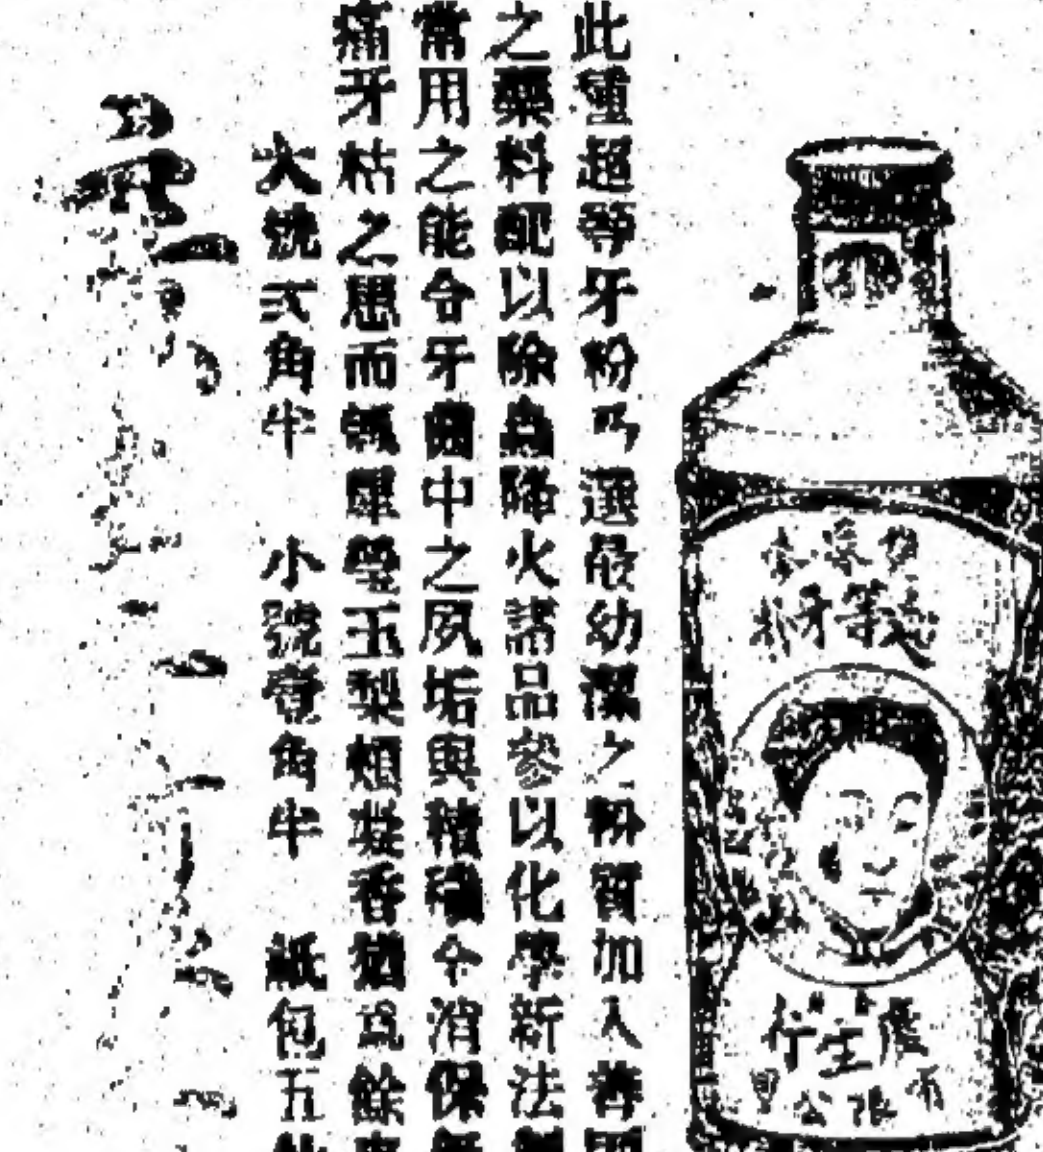 超等牙粉
廣生行
有限公司
此種超等牙粉乃選最幼潔之粉質加入
之藥料配以除蟲降火諸品參以化學新法製
常用之能令牙齒中之夙垢與積穢全消保無
痛牙枯之患而瓠犀瑩玉梨頰凝香猶為餘事
大號弍角半 小號壹角半 紙包五